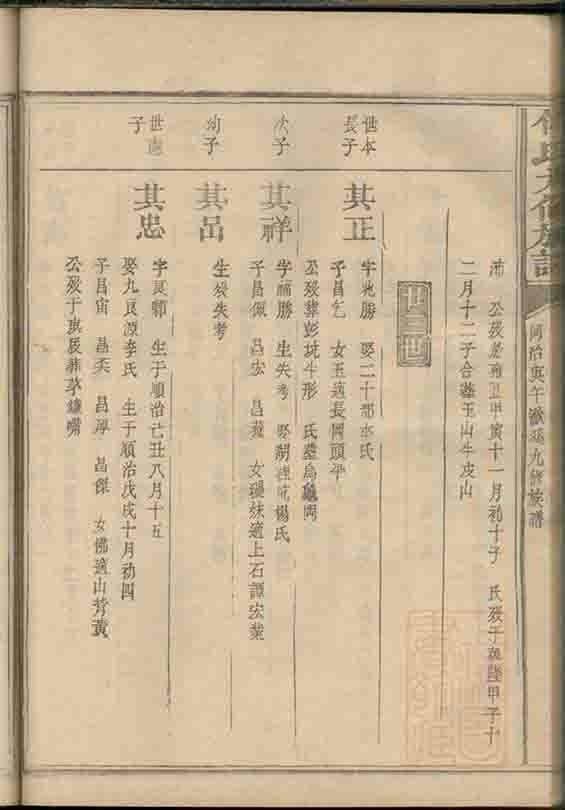 氏大伯族譜
同治庚午
九修族譜
沛 公歿於雍正甲寅十一月初十子 氏歿于乾隆甲子十
二月十二子合墓玉山牛皮山
世三世
本世長子
其正
字兆勝 娶二十都李氏
子昌乞 女玉適長岡頭
公歿葬彭坑斗形 氏墓烏龜岡
次子
其祥
字福勝 生失考 娶 楊氏
子昌佩 昌宏 昌 女 妹適上石譚宏業
幼子
其呂
生歿失考
世 子
其忠
字良鄉 生于順治己丑八月十五
娶九良源李氏 生于順治戊戌十月初四
子昌宙 昌 昌厚 昌傑 女佛適山背黃
公歿于 辰葬茅鐮嘴